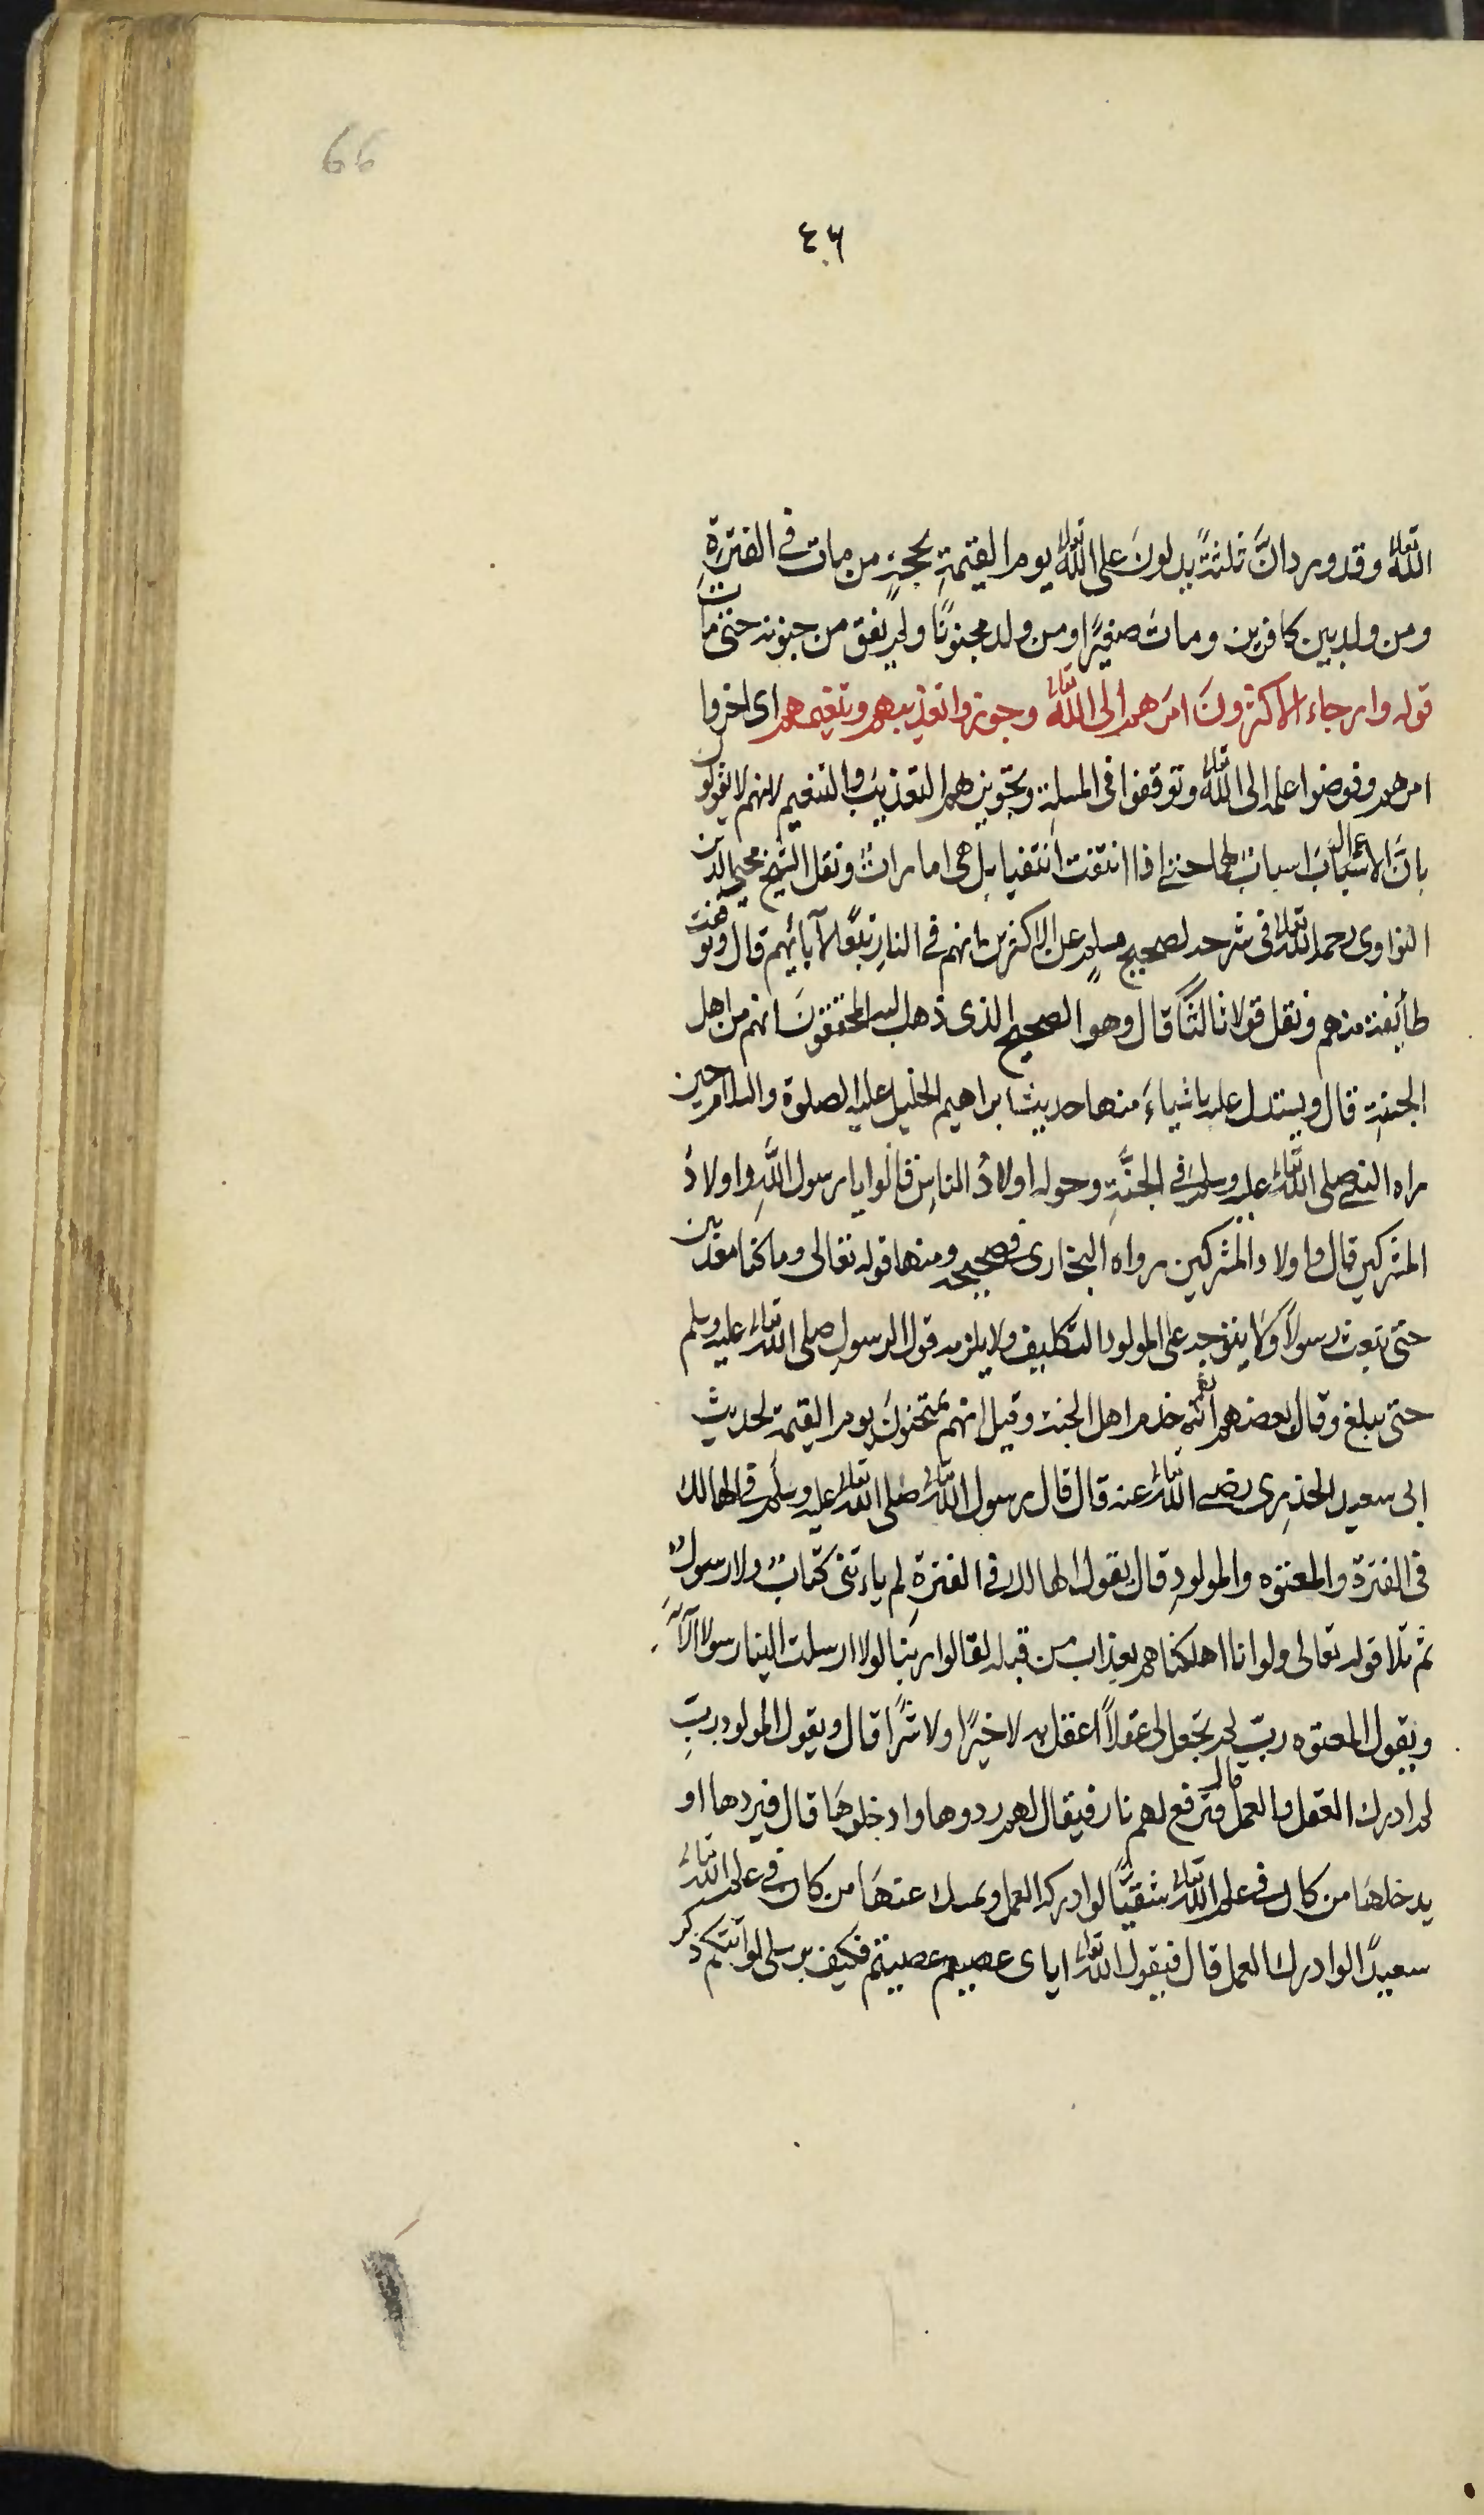 66
٤٦
الله تعالى وقد ورد انَّ ثلثةً يدلونَ على الله تعالى يوم القيمةِ بحجةٍ من مات في الفترةِ
ومن ولد بين كافرين ومات صغيرًا ومن ولد مجنونًا ولم يفق من جنونه حتى مات
قوله وارجاء الاكثرونَ امرَهم الى الله تعالى وجوزوا تعذيبهم وتنعيمهم اى اخروا
امرهم وفوضوا علمه الى الله تعالى وتوقفوا فى المسلة وتجويزهم التعذيبَ والتنعيم لانهم لا يقولون
بانَّ الاعمال اسبابٌ لهما حتى اذا انتفت انتفيا بل هى اماراتٌ ونقل الشيخ محيى الدين
النواوى رحمه الله تعالى فى شرحه لصحيح مسلمٍ عن الاكثرين انهم في النارِ تبعًا لآبائهم قال وتوقفت
طائفة منهم ونقل قولا ثالثًا قال وهو الصحيح الذى ذهب اليه المحققونَ انهم من اهل
الجنةِ قال ويستدل عليه باشياءَ منها حديث ابراهيم الخليل عليه الصلوة والسلام حين
راه النبى صلى الله تعالى عليه وسلم في الجنَّةِ وحوله اولادُ الناسِ قالوا يا رسول اللهِ واولادُ
المشركين قال واولاد المشركين رواه البخارى فى صحيحه ومنها قوله تعالى وما كنا معذبين
حتى نبعث رسولاً ولا يتوجه على المولود التكليف ولا يلزمه قول الرسولِ صلى الله تعالى عليه وسلم
حتى يبلغ وقال بعضهم انهم خدم اهل الجنة وقيل انهم يمتحنونَ يوم القيمة لحديث
ابى سعيد الخدرِى رضى الله تعالى عنه قال قال رسول الله تعالى صلى الله تعالى عليه وسلم فى الهالك
فى الفترة والمعتوه والمولودِ قال يقول الهالك فى الفترةِ لم ياءتنى كتابٌ ولا رسولٌ
ثم تلا قوله تعالى ولو انا اهلكناهم بعذاب من قبله لقالوا ربنا لولا ارسلت الينا رسولا الآيه
ويقول المعتوه ربّ لم تجعل لى عقلاً اعقل به لا خيرًا ولا شرًا قال ويقول المولود ربِّ
لم ادرك العقل والعمل قال فترفع لهم نار فيقال لهم ردوها وادخلوهَا قال فيردها او
يدخلهَا من كان في علم الله تعالى شقيًّا لو ادرك العمل ويمسك عنهَا من كان في علم الله تعالى
سعيدًا لو ادرك العمل قال فيقول الله تعالى اياى عصيتم عصيتم فكيف برسلى لو اتتكم ذكر